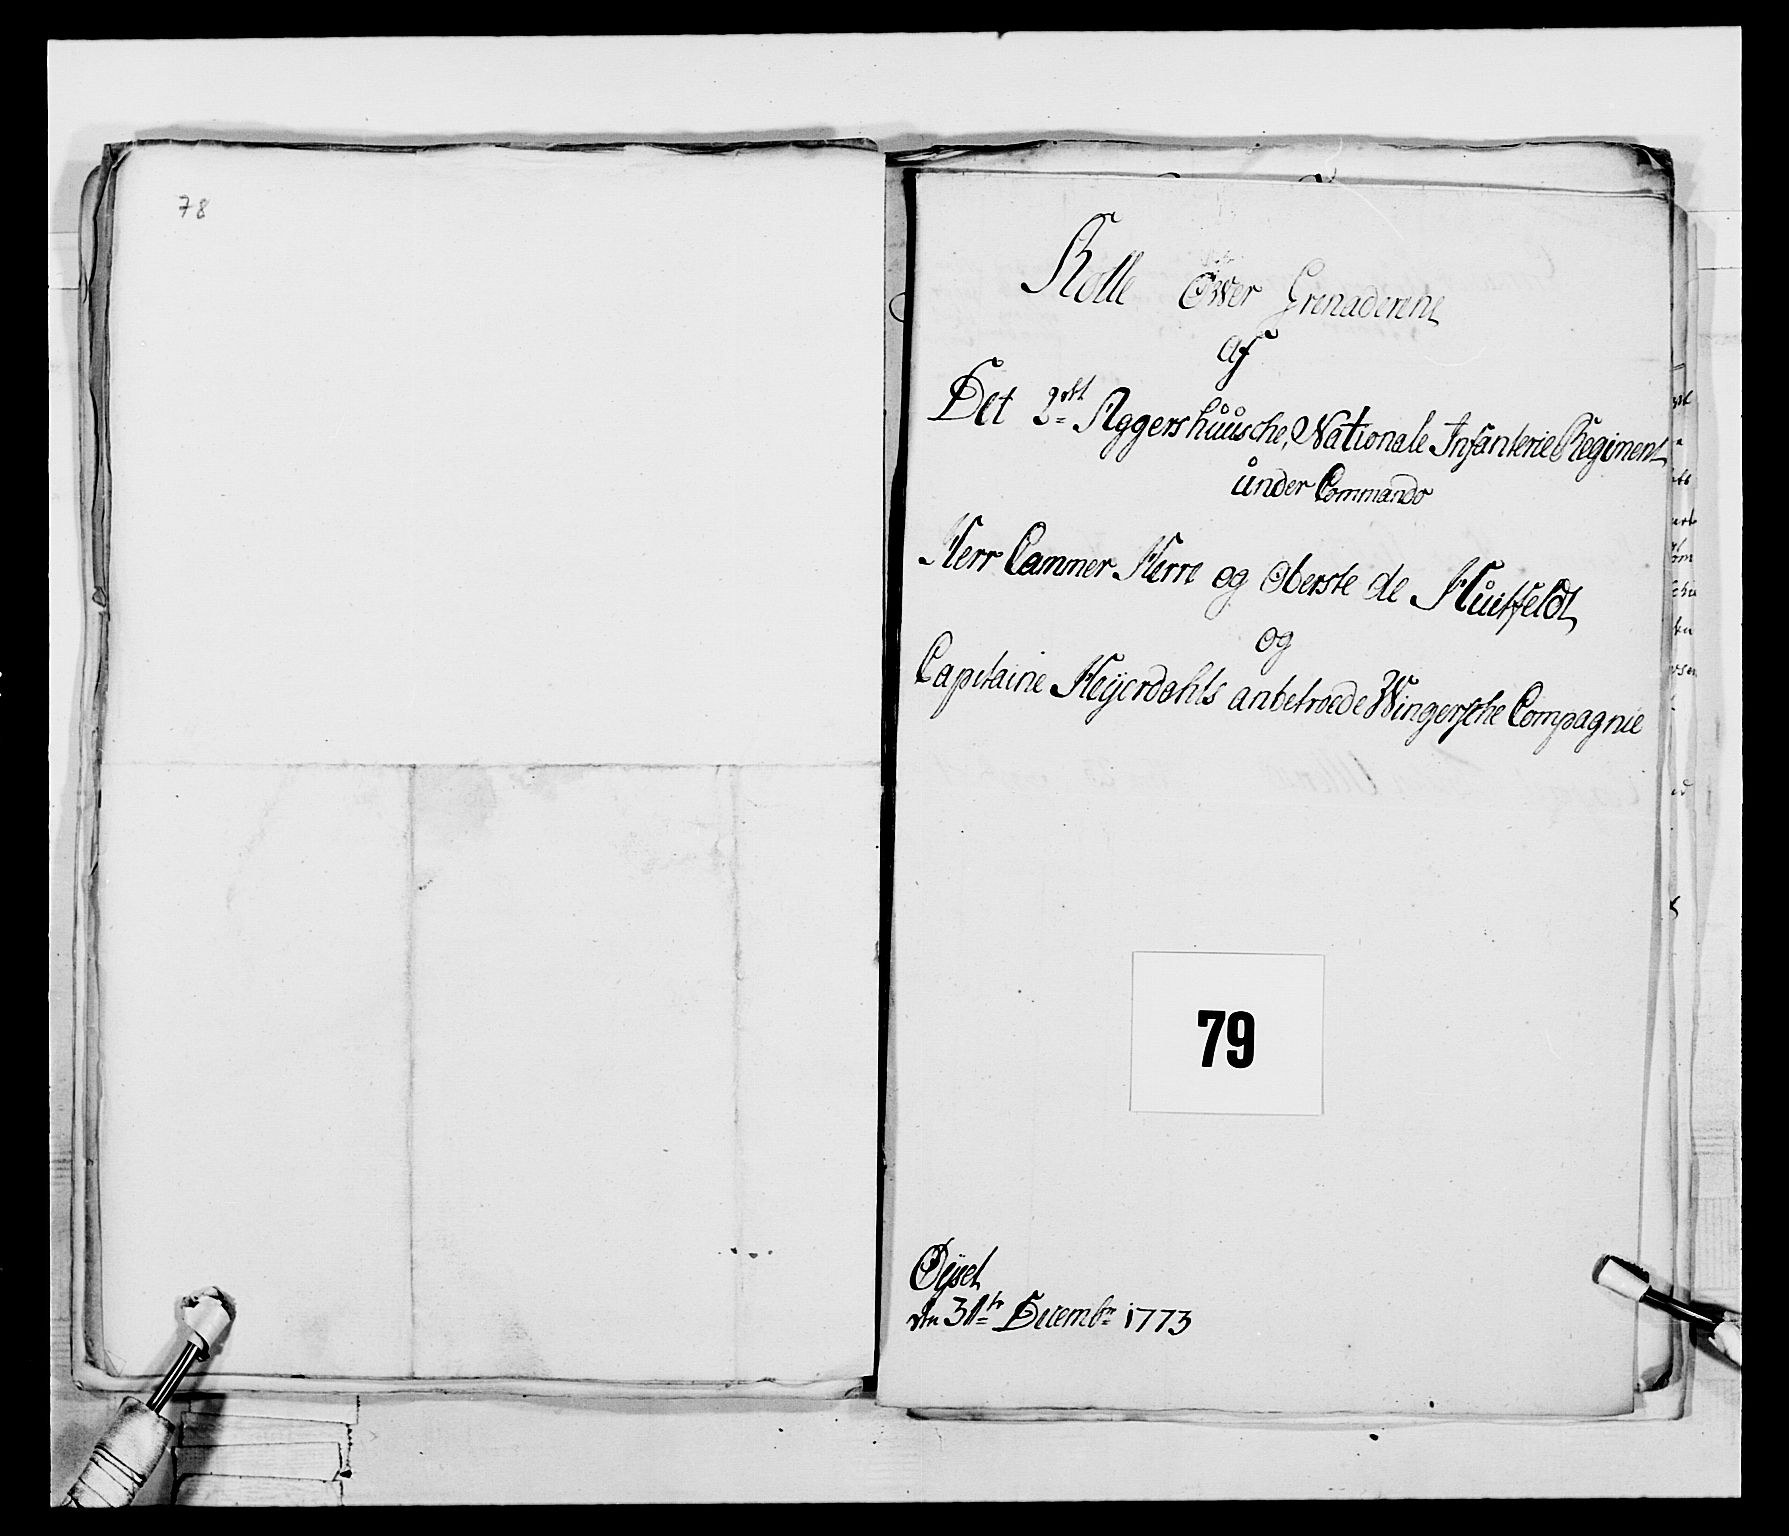 78
Rolle Över Grenaderene
af
Det 2det Aggershuusche, Nationale Infanterie Regiment
under Commando
Herr Cammer Herre og Oberste de Huitfeldt
og
Capitaine Heÿerdahls anbetroede Wingersche Compagnie
79
Öÿset
den 31te Decembr 1773